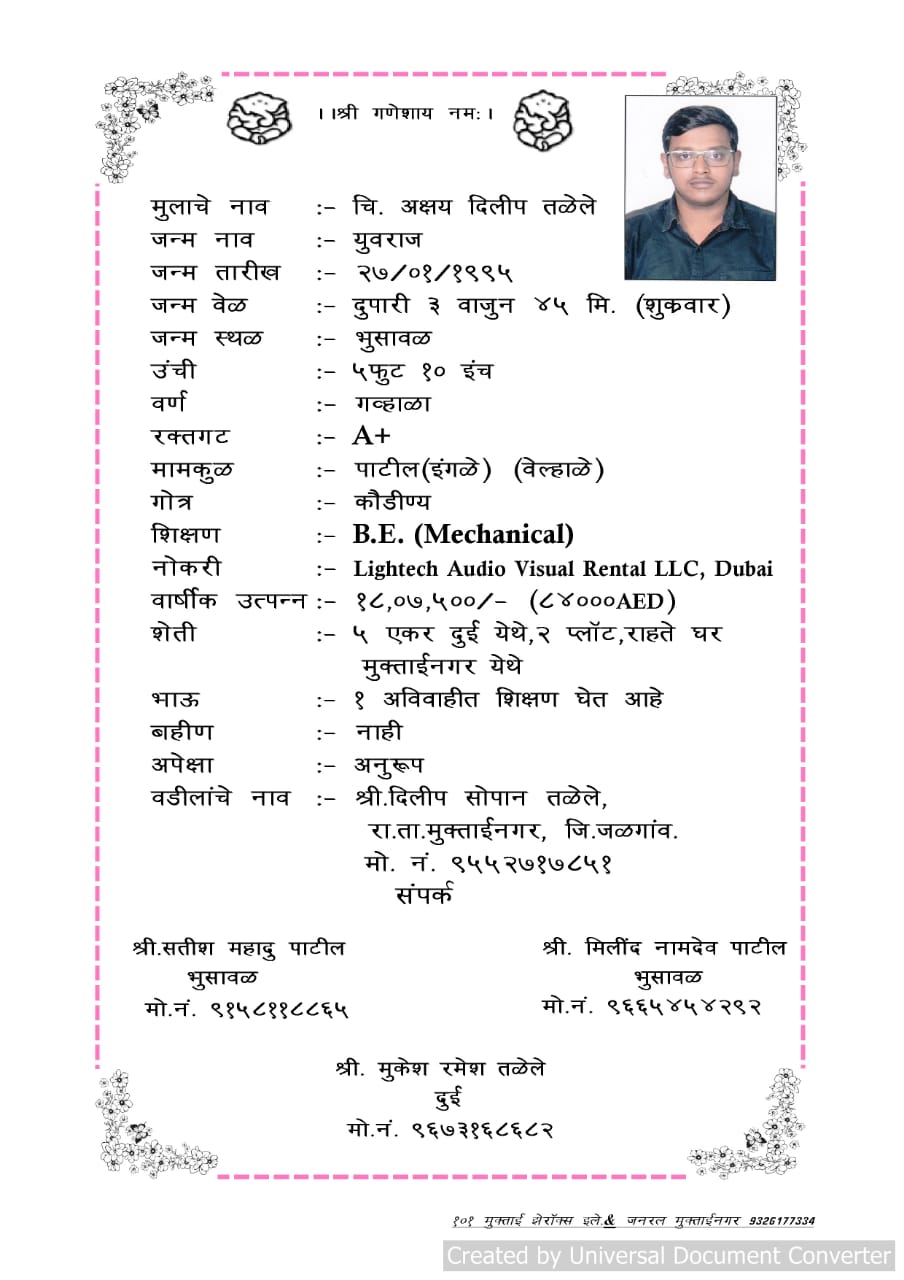 ।।श्री गणेशाय नमः।
मुलाचे नाव :- चि. अक्षय दिलीप तळेले
जन्म नाव :- युवराज
जन्म तारीख :- २७/०१/१९९५
जन्म वेळ :- दुपारी ३ वाजुन ४५ मि. (शुक्रवार)
जन्म स्थळ :- भुसावळ
उंची :- ५फुट १० इंच
वर्ण :- गव्हाळा
रक्तगट :- A+
मामकुळ :- पाटील(इंगळे) (वेल्हाळे)
गोत्र :- कौडीण्य
शिक्षण :- B.E. (Mechanical)
नोकरी :- Lightech Audio Visual Rental LLC, Dubai
वार्षीक उत्पन्न :- १८,०७,५००/- (८४०००AED)
शेती :- ५ एकर दुई येथे,२ प्लॉट,राहते घर
मुक्ताईनगर येथे
भाऊ :- १ अविवाहीत शिक्षण घेत आहे
बहीण :- नाही
अपेक्षा :- अनुरूप
वडीलांचे नाव :- श्री.दिलीप सोपान तळेले,
रा.ता.मुक्ताईनगर, जि.जळगांव.
मो. नं. ९५५२७१७८५१
संपर्क
श्री.सतीश महादु पाटील
भुसावळ
मो.नं. ९१५८११८८६५
श्री. मिलींद नामदेव पाटील
भुसावळ
मो.नं. ९६६५४५४२९२
श्री. मुकेश रमेश तळेले
दुई
मो.नं. ९६७३१६८६८२
१०१ मुक्ताई झेरॉक्स इले.& जनरल मुक्ताईनगर 9326177334
Created by Universal Document Converter